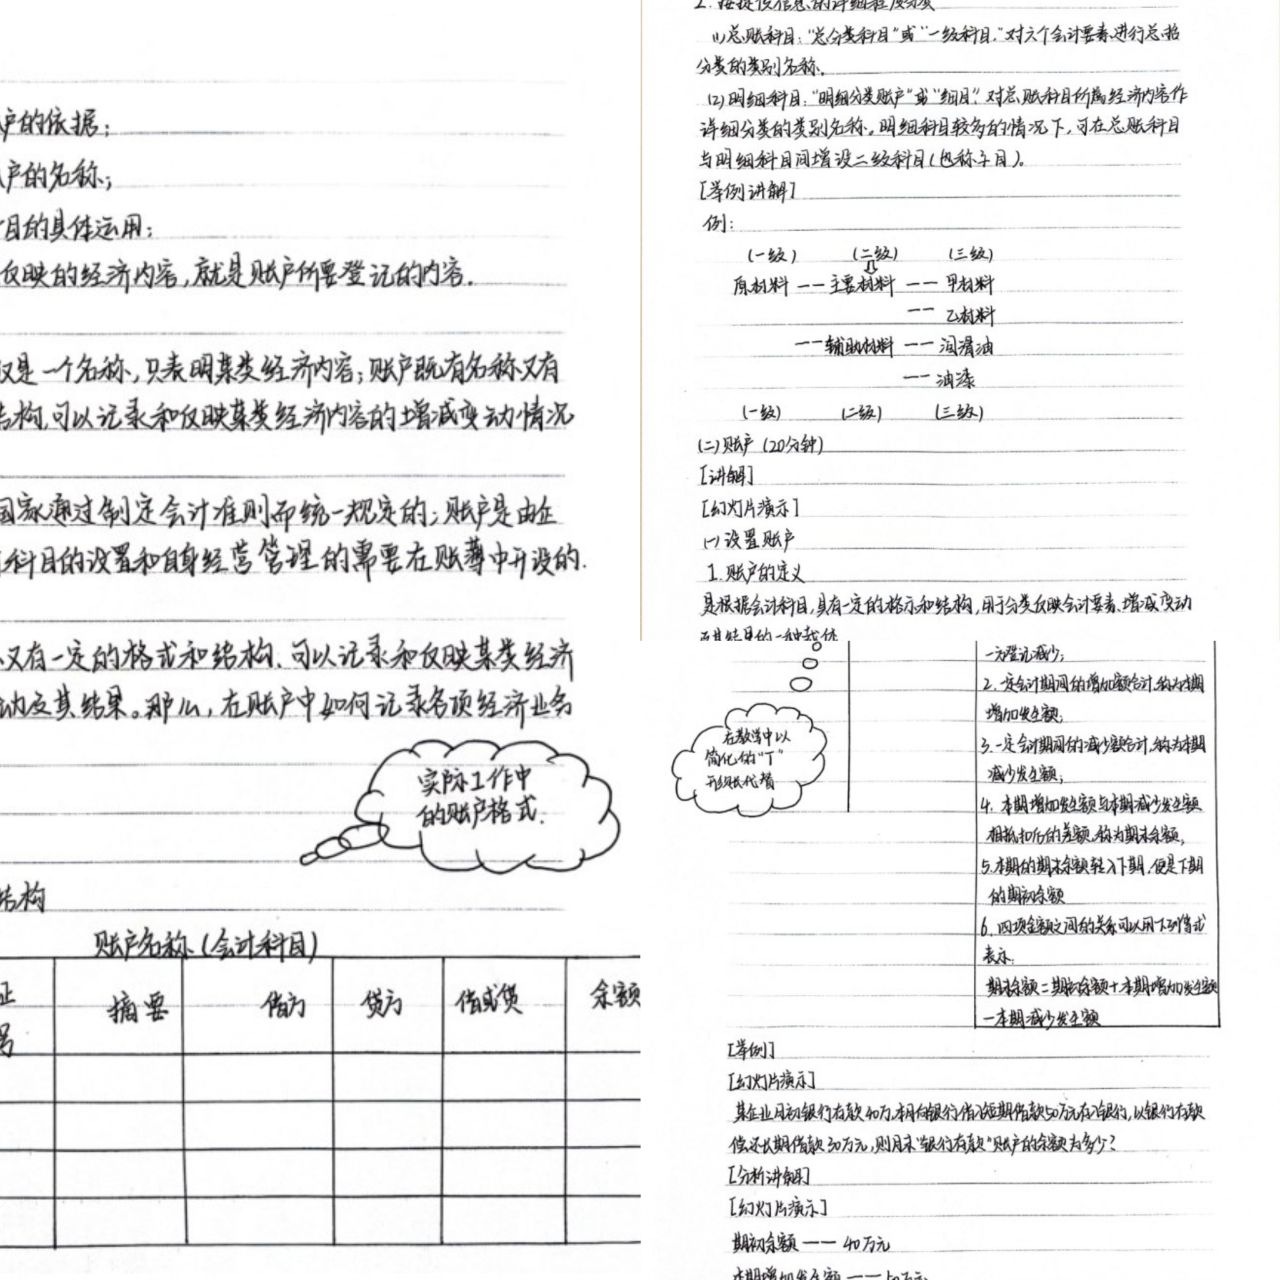 户的依据；
户的名称；
目的具体运用；
反映的经济内容,就是账户所要登记的内容.
仅是一个名称,只表明某类经济内容；账户既有名称又有
结构,可以记录和反映某类经济内容的增减变动情况
国家通过制定会计准则而统一规定的；账户是由企
科目的设置和自身经营管理的需要在账簿中开设的.
又有一定的格式和结构.可以记录和反映某类经济
动及其结果。那么,在账户中如何记录各项经济业务
实际工作中
的账户格式.
结构
账户名称(会计科目)
摘要 借方 贷方 借或贷 余额
号
2.按提供信息的详细程度分类
(1)总账科目："总分类科目"或"一级科目."对六个会计要素进行总括
分类的类别名称。
(2)明细科目："明细分类账户"或"细目".对总账科目所属经济内容作
详细分类的类别名称。明细科目较多的情况下,可在总账科目
与明细科目间增设二级科目(也称子目)。
[举例讲解]
例：
(一级) (二级) (三级)
原材料 —— 主要材料 —— 甲材料
—— 乙材料
——辅助材料 —— 润滑油
—— 油漆
(一级) (二级) (三级)
(二)账户 (20分钟)
[讲解]
[幻灯片演示]
(一)设置账户
1.账户的定义
是根据会计科目,具有一定的格示和结构,用于分类反映会计要素增减变动
及其结果的一种载体
在教学中以
简化的"丁"
形账代替
一方登记减少；
2.一定会计期间的增加额合计,称为本期
增加发生额；
3.一定会计期间的减少额合计,称为本期
减少发生额；
4.本期增加发生额与本期减少发生额
相抵扣后的差额,称为期末余额；
5.本期的期末余额转入下期,便是下期
的期初余额
6.四项金额之间的关系可以用下列等式
表示
期末余额=期初余额+本期增加发生额
-本期减少发生额
[举例]
[幻灯片演示]
某企业月初银行存款40万,本月向银行借入短期借款50万元存入银行,以银行存款
偿还长期借款30万元,则月末"银行存款"账户的余额为多少？
[分析讲解]
[幻灯片演示]
期初余额 —— 40万元
本期增加发生额 —— 50万元